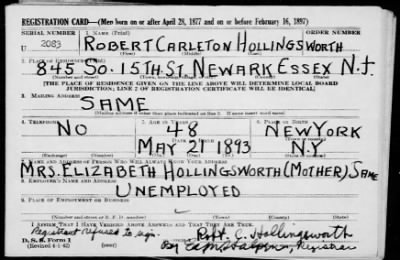 REGISTRATION CARD—(Men born on or after April 28, 1877 and on or before February 16, 1897)
SERIAL NUMBER 1. NAME (Print) ORDER NUMBER
U 2083 ROBERT CARLETON HOLLINGSWORTH
(First) (Middle) (Last)
2. PLACE OF RESIDENCE (Print)
845 SO. 15TH. ST. NEWARK ESSEX N.J.
(Number and street) (Town, township, village, or city) (County) (State)
[THE PLACE OF RESIDENCE GIVEN ON THE LINE ABOVE WILL DETERMINE LOCAL BOARD
JURISDICTION; LINE 2 OF REGISTRATION CERTIFICATE WILL BE IDENTICAL]
3. MAILING ADDRESS
SAME
(Mailing address if other than place indicated on line 2. If same insert word same)
4. TELEPHONE 5. AGE IN YEARS 6. PLACE OF BIRTH
NO 48 NEW YORK
DATE OF BIRTH (Town or county)
MAY 21 1893 N.Y
(Exchange) (Number) (Mo.) (Day) (Yr.) (State or country)
7. NAME AND ADDRESS OF PERSON WHO WILL ALWAYS KNOW YOUR ADDRESS
MRS. ELIZABETH HOLLINGSWORTH (MOTHER) SAME
8. EMPLOYER'S NAME AND ADDRESS
UNEMPLOYED
9. PLACE OF EMPLOYMENT OR BUSINESS
(Number and street or R. F. D. number) (Town) (County) (State)
I AFFIRM THAT I HAVE VERIFIED ABOVE ANSWERS AND THAT THEY ARE TRUE.
Registrant refused to sign. Robt. C. Hollingsworth
D. S. S. Form 1 By Registrar
(Revised 4-1-42)